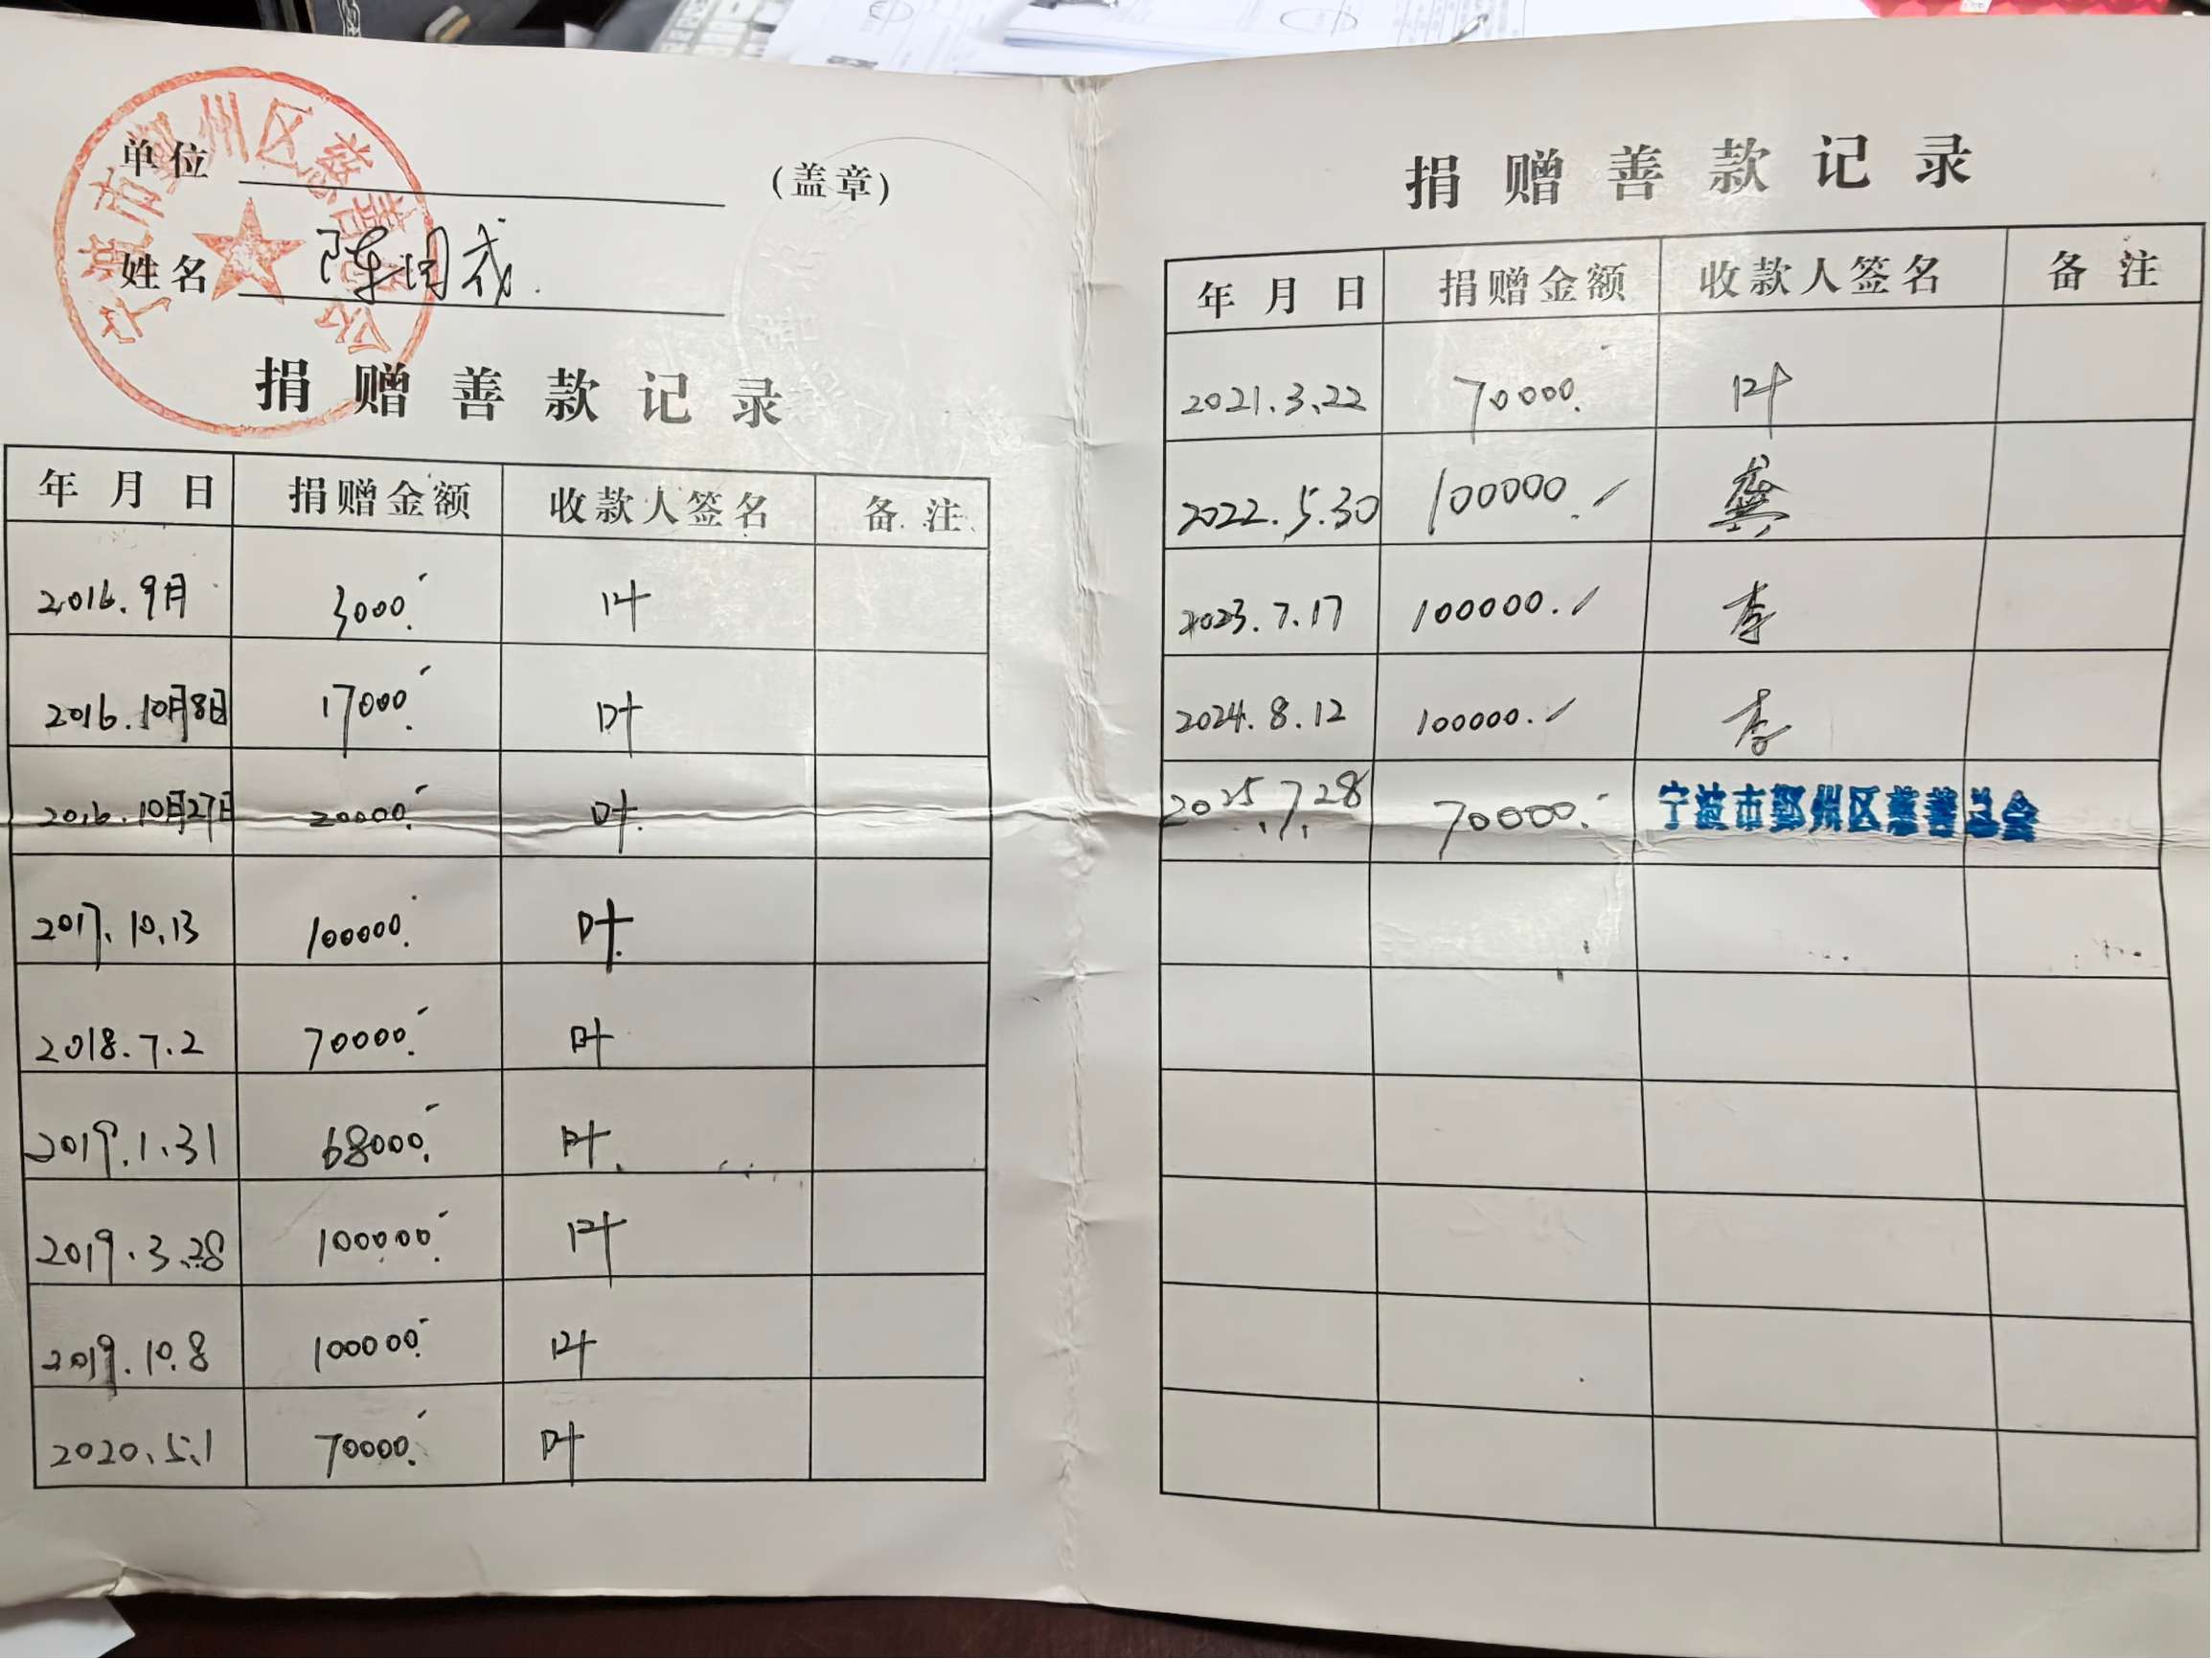 宁波市鄞州区慈善总会
单位 (盖章)
姓名 陈国成
捐赠善款记录
年月日 捐赠金额 收款人签名 备注
2016.9月 3000. 叶
2016.10月8日 17000. 叶
2016.10月27日 20000. 叶
2017.10.13 100000. 叶
2018.7.2 70000. 叶
2019.1.31 68000. 叶
2019.3.28 100000. 叶
2019.10.8 100000. 叶
2020.5.1 70000. 叶
捐赠善款记录
年月日 捐赠金额 收款人签名 备注
2021.3.22 70000. 叶
2022.5.30 100000. 龚
2023.7.17 100000. 李
2024.8.12 100000. 李
2025.7.28 70000. 宁波市鄞州区慈善总会